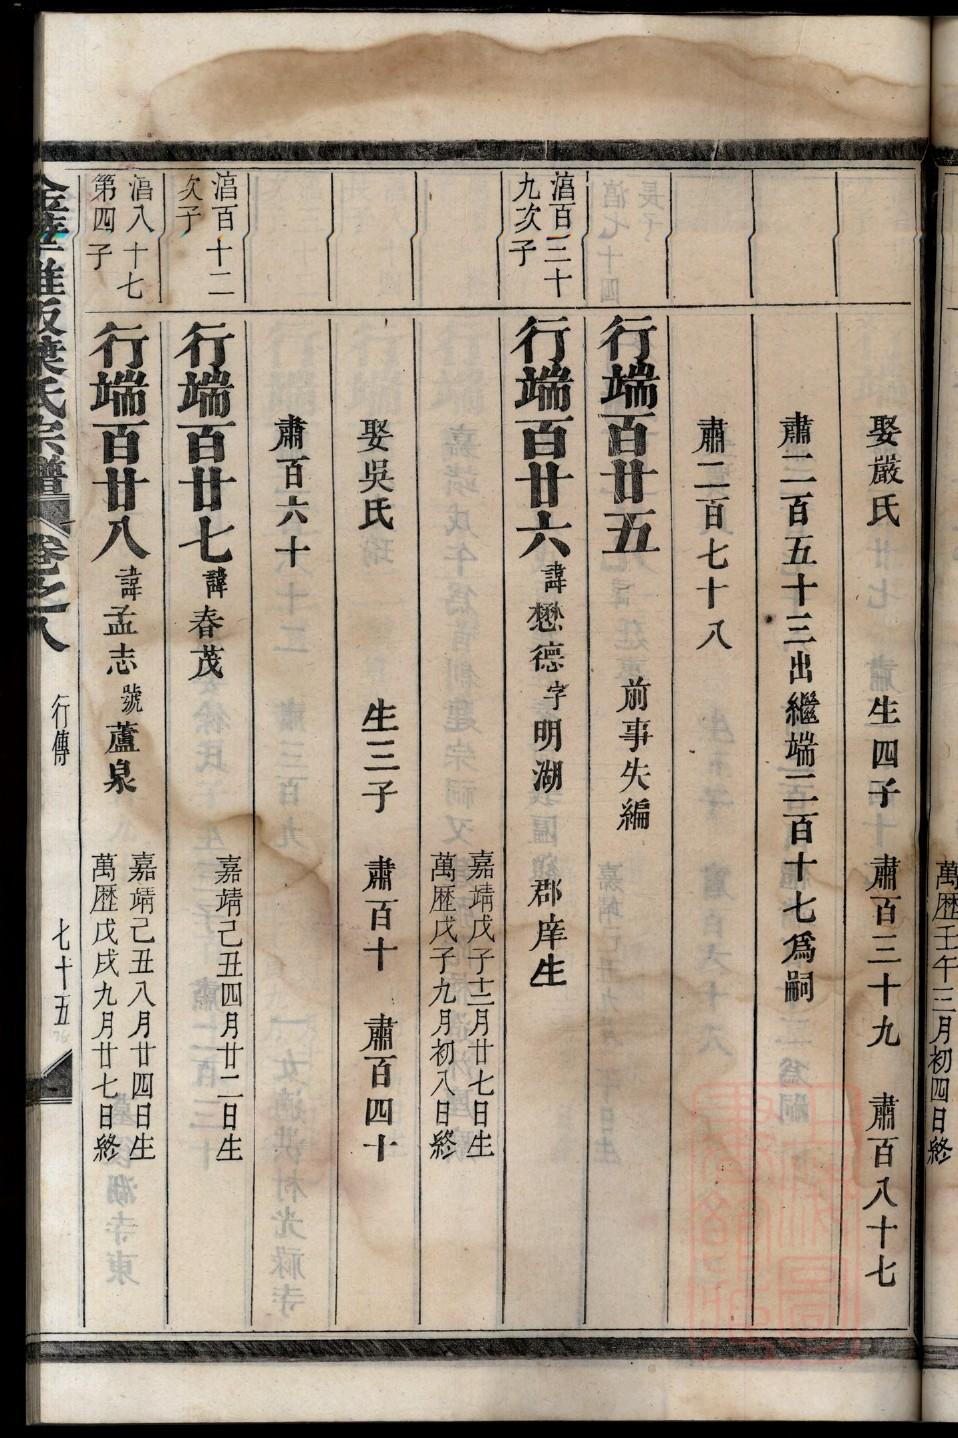 娶嚴氏 生四子 肅百三十九 肅百八十七
肅二百五十三出繼端二百十七為嗣
肅二百七十八
行端百廿五 前事失編
湻百三十
九次子
行端百廿六 諱懋德字明湖 郡庠生
嘉靖戊子十二月廿七日生
萬歷戊子九月初八日終
娶吳氏 生三子 肅百十 肅百四十
肅百六十
湻百十二
次子
行端百廿七 諱春茂
嘉靖己丑四月廿二日生
湻八十七
第四子
行端百廿八 諱孟志 號蘆泉
嘉靖己丑八月廿四日生
萬歷戊戌九月廿七日終
葉氏宗譜 卷之八 行傳 七十五
萬歷壬午三月初四日終